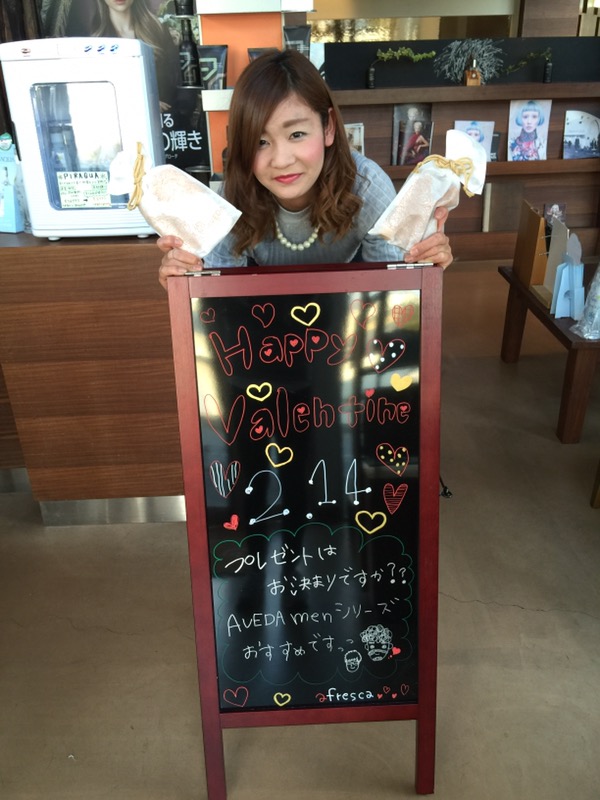 る
の輝き
PIRAGUA
Happy
Valentine
2.14
プレゼントは
お決まりですか??
AVEDA menシリーズ
おすすめですっっ
afresca